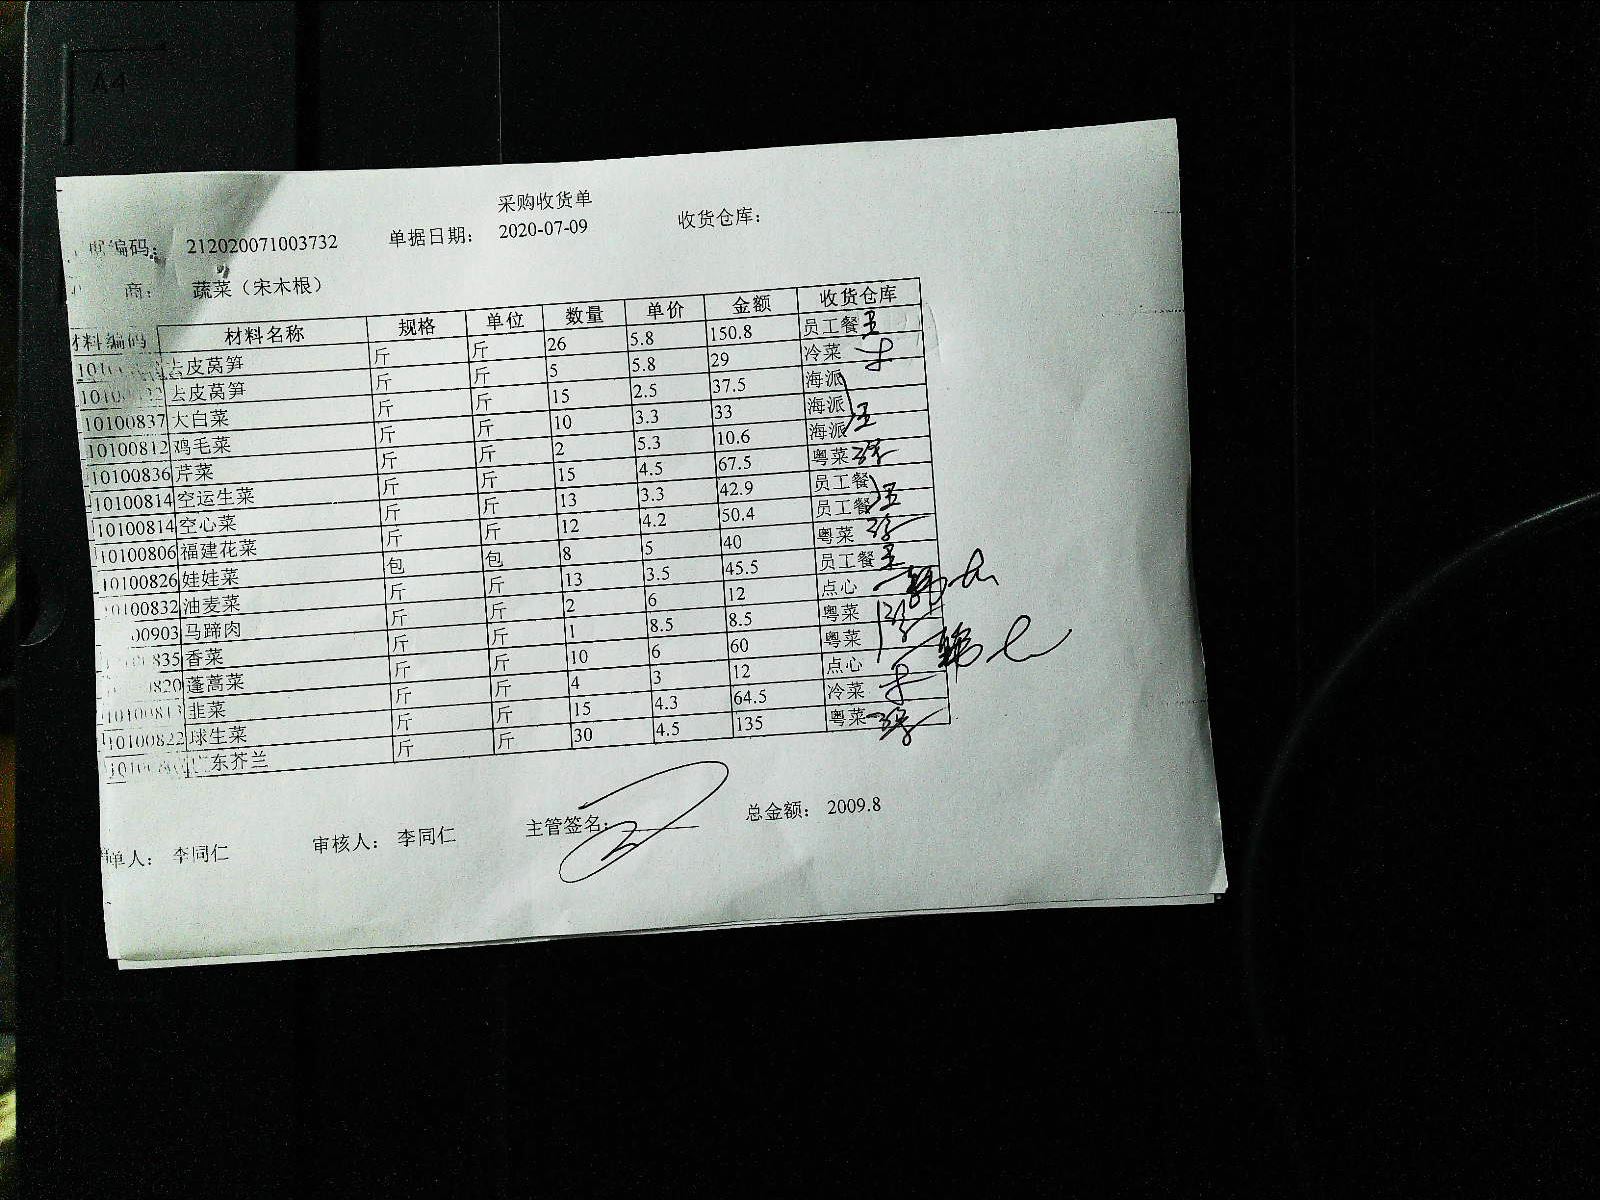 A4
采购收货单
据编码： 212020071003732 单据日期： 2020-07-09 收货仓库：
商： 蔬菜（宋木根）
材料编码 材料名称 规格 单位 数量 单价 金额 收货仓库
去皮莴笋 斤 斤 26 5.8 150.8 员工餐 王
去皮莴笋 斤 斤 5 5.8 29 冷菜
10100837 大白菜 斤 斤 15 2.5 37.5 海派
10100812 鸡毛菜 斤 斤 10 3.3 33 海派
10100836 芹菜 斤 斤 2 5.3 10.6 海派 王
10100814 空运生菜 斤 斤 15 4.5 67.5 粤菜
10100814 空心菜 斤 斤 13 3.3 42.9 员工餐
10100806 福建花菜 斤 斤 12 4.2 50.4 员工餐 王
10100826 娃娃菜 包 包 8 5 40 粤菜
10100832 油麦菜 斤 斤 13 3.5 45.5 员工餐 王
00903 马蹄肉 斤 斤 2 6 12 点心
835 香菜 斤 斤 1 8.5 8.5 粤菜
820 蓬蒿菜 斤 斤 10 6 60 粤菜
10100813 韭菜 斤 斤 4 3 12 点心
10100822 球生菜 斤 斤 15 4.3 64.5 冷菜
广东芥兰 斤 斤 30 4.5 135 粤菜
单人： 李同仁 审核人： 李同仁 主管签名： 总金额： 2009.8